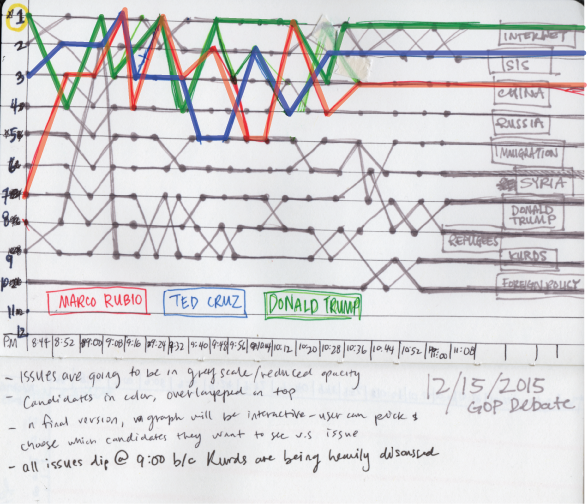 1
2
3
4
5
6
7
8
9
10
11
12
INTERNET
ISIS
CHINA
RUSSIA
IMMIGRATION
SYRIA
DONALD TRUMP
REFUGEES
KURDS
FOREIGN POLICY
MARCO RUBIO
TED CRUZ
DONALD TRUMP
PM 8:44 8:52 9:00 9:08 9:16 9:24 9:32 9:40 9:48 9:56 10:04 10:12 10:20 10:28 10:36 10:44 10:52 11:00 11:08
12/15/2015
GOP Debate
- Issues are going to be in greyscale/reduced opacity
- Candidates in color, overlapped on top
- in final version, graph will be interactive - user can pick &
choose which candidates they want to see v.s issue
- all issues dip @ 9:00 b/c Kurds are being heavily discussed